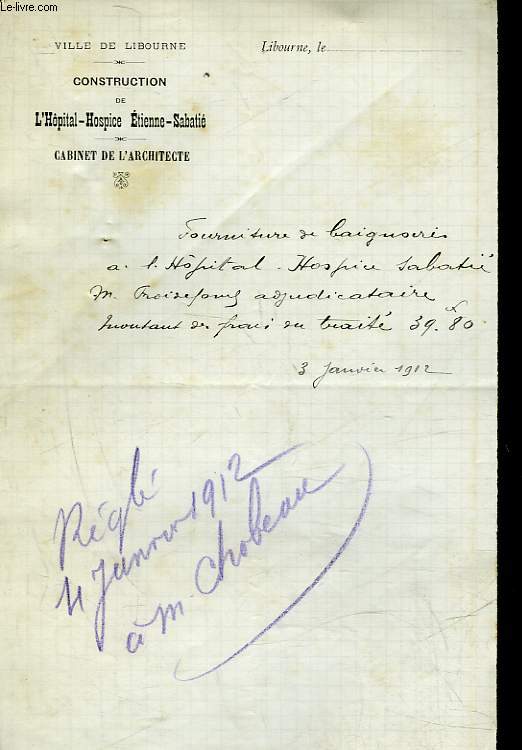 Le-livre.com
VILLE DE LIBOURNE
CONSTRUCTION
DE
L'Hôpital-Hospice Étienne-Sabatié
CABINET DE L'ARCHITECTE
Libourne, le
Fourniture de baignoires
a. l. Hôpital. Hospice Sabatié
M. adjudicataire
montant des frais du traité 39.80
3 Janvier 1912
Réglé
4 Janvier 1912
à M. Chobeau